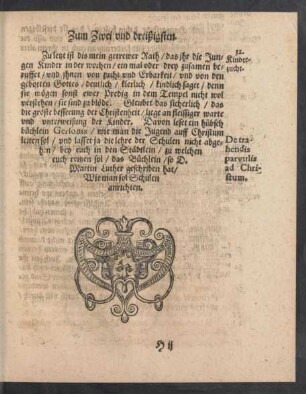 Zum Zwei vnd dreißigsten
Zu letzt ist dis mein getrewer Rath / das ihr die Jun-
gen Kinder in der wochen / ein mal oder drey zusamen be-
ruffet / vnd ihnen von zucht vnd Erbarkeit / vnd von den
gebotten Gottes / deutlich / lieblich / kindlich saget / denn
sie mögen sonst ewer Predig in dem Tempel nicht wol
verstehen / sie sind zu blöde. Gleubet das sicherlich / das
die gröste besserung der Christenheit / ligt an fleissiger warte
vnd vnterweisung der Kinder. Davon leset ein hübsch
büchlein Gersonis / wie man die Jugend auff Christum
leiten sol / vnd lasset ja die lehre der Schulen nicht abge-
hen / bey euch in den Städtlein / zu welchen
euch reitzen sol / das Büchlein / so D.
Martin Luther geschriben hat /
Wie man sol Schulen
anrichten.
32.
Kinder-
zucht.
De tra-
hendis
parvulis
ad Chri-
stum.
H ij